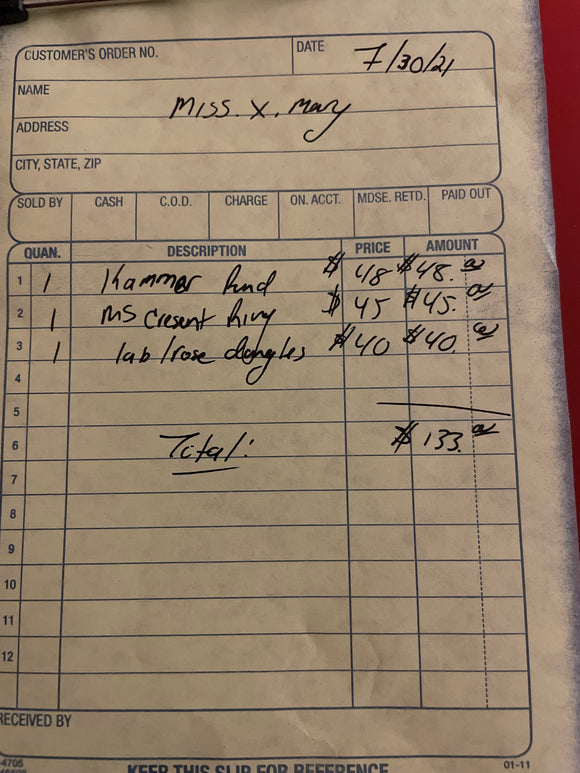 CUSTOMER'S ORDER NO. DATE 7/30/21
NAME Miss. X. Mary
ADDRESS
CITY, STATE, ZIP
SOLD BY CASH C.O.D. CHARGE ON. ACCT. MDSE. RETD. PAID OUT
QUAN. DESCRIPTION PRICE AMOUNT
1 1 $ 48 $48.00
2 1 MS Cresent $ 45 $45.00
3 1 lab/rose dangles $40 $40.00
4
5
6 Total: $133.00
7
8
9
10
11
12
RECEIVED BY
-4705
KEEP THIS SLIP FOR REFERENCE 01-11